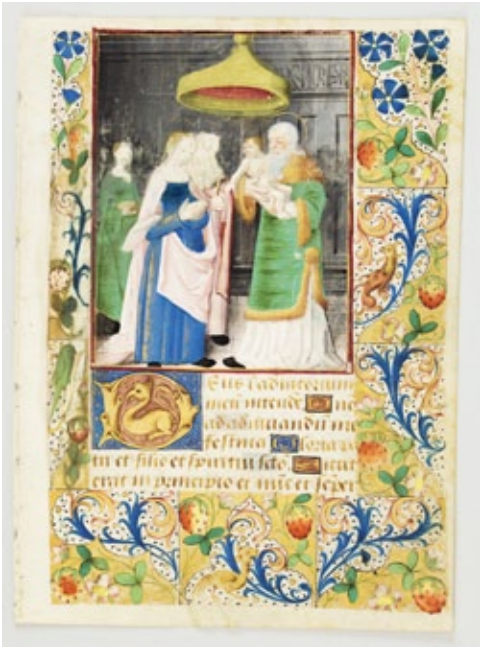 eus in adiutorium
meū intende ne
ad adiuuandū me
festina Gloria pa
tri et filio et spiritui scō Sicut
erat in principio et nūc et seper